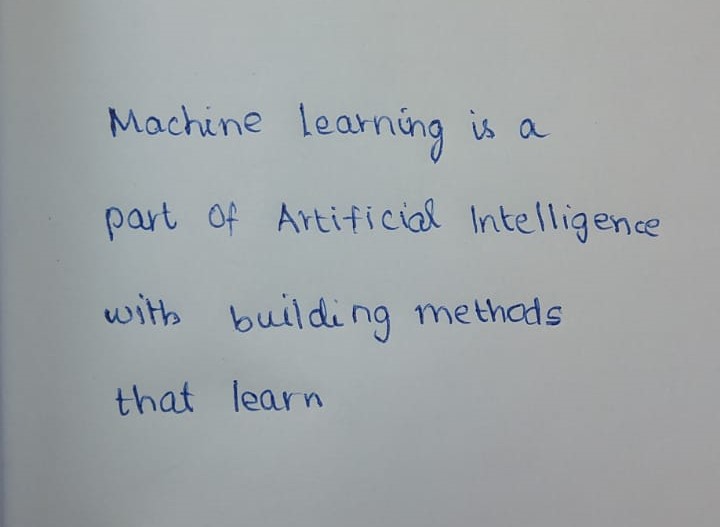 Machine Learning is a
part of Artificial Intelligence
with building methods
that learn